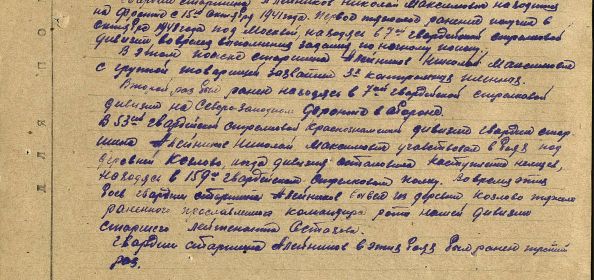 Гвардии старшина Алейников Николай Максимович находится
на фронте с 15го октября 1941 года. Первое тяжелое ранение получил в
октябре 1941 года под Москвой, находясь в 7мой гвардейской стрелковой
дивизии во время выполнения задания по ночному поиску.
В этом поиске старшина Алейников Николай Максимович
с группой товарищей захватил 3х контрольных пленных.
Второй раз был ранен находясь в 7мой гвардейской стрелковой
дивизии на Северо-Западном фронте в обороне.
В 53ей гвардейской стрелковой Краснознаменной дивизии гвардии стар-
шина Алейников Николай Максимович участвовал в боях под
деревней Козлово, когда дивизия остановила наступление немцев,
находясь в 159м гвардейском стрелковом полку. Во время этих
боев гвардии старшина Алейников вывез из деревни Козлово тяжело
раненного прославленного командира роты нашей дивизии
старшего лейтенанта Остахова.
Гвардии старшина Алейников в этих боях был ранен третий
раз.
ДЛЯ ПО